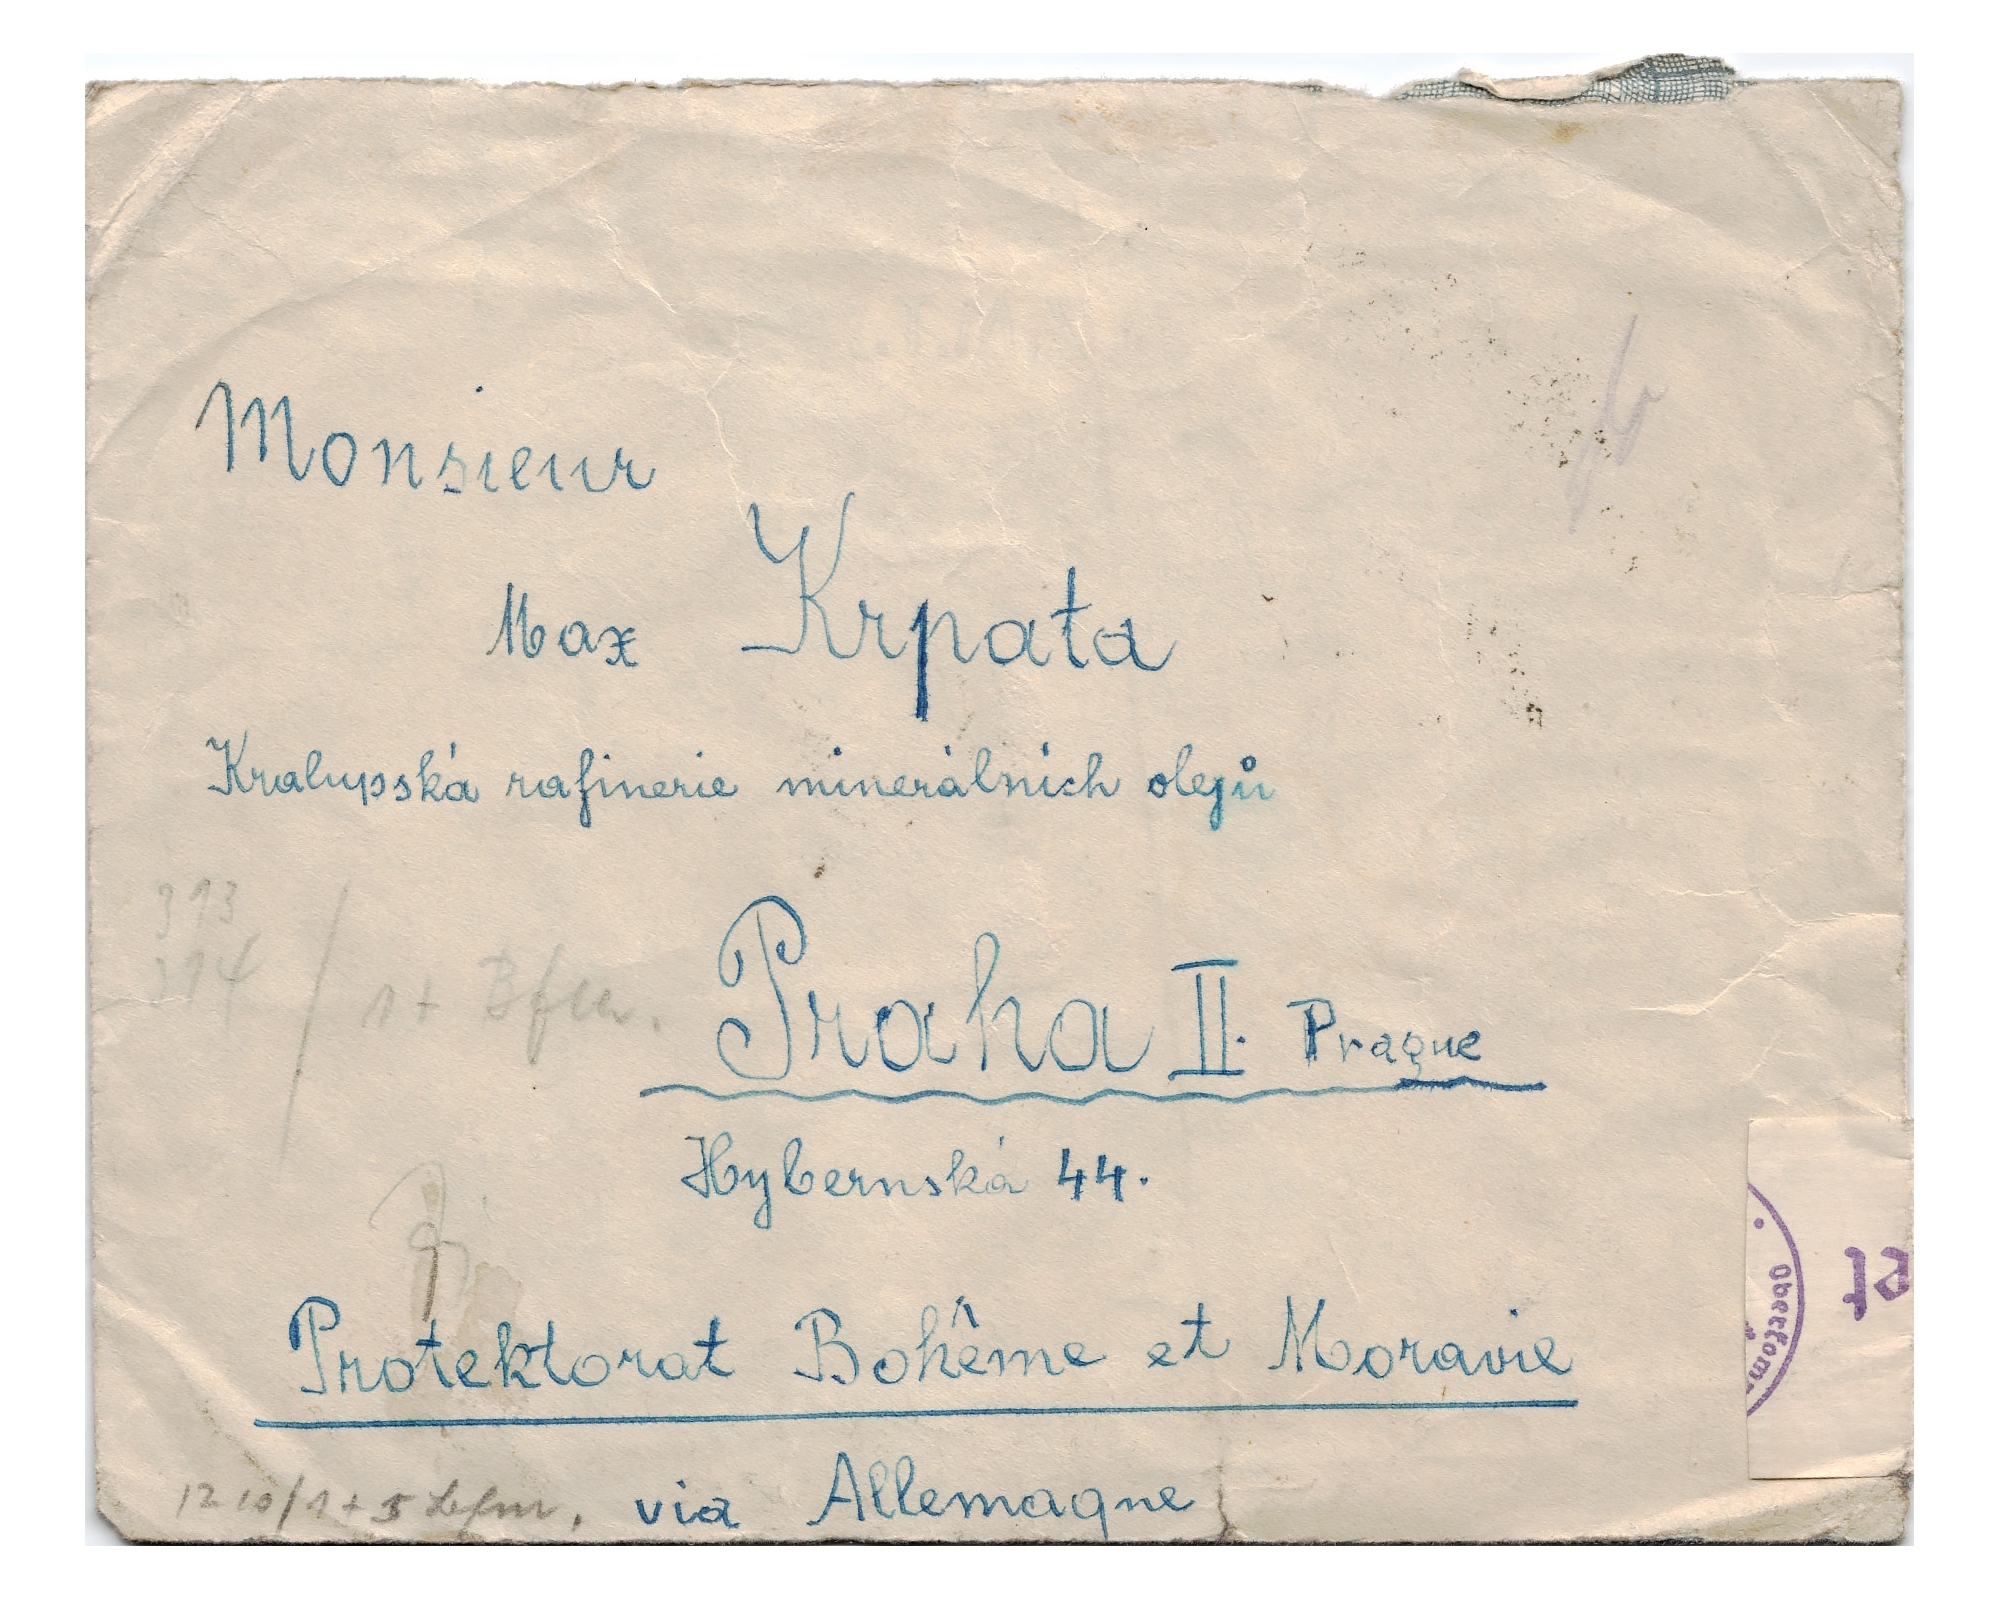 Monsieur
Max Krpata
Kralupská rafinerie minerálních olejů
313
314
1+
Praha II. Prague
Hybernská 44.
Oberkom
Protektorat Bohême et Moravie
12 10/1+5
via Allemagne